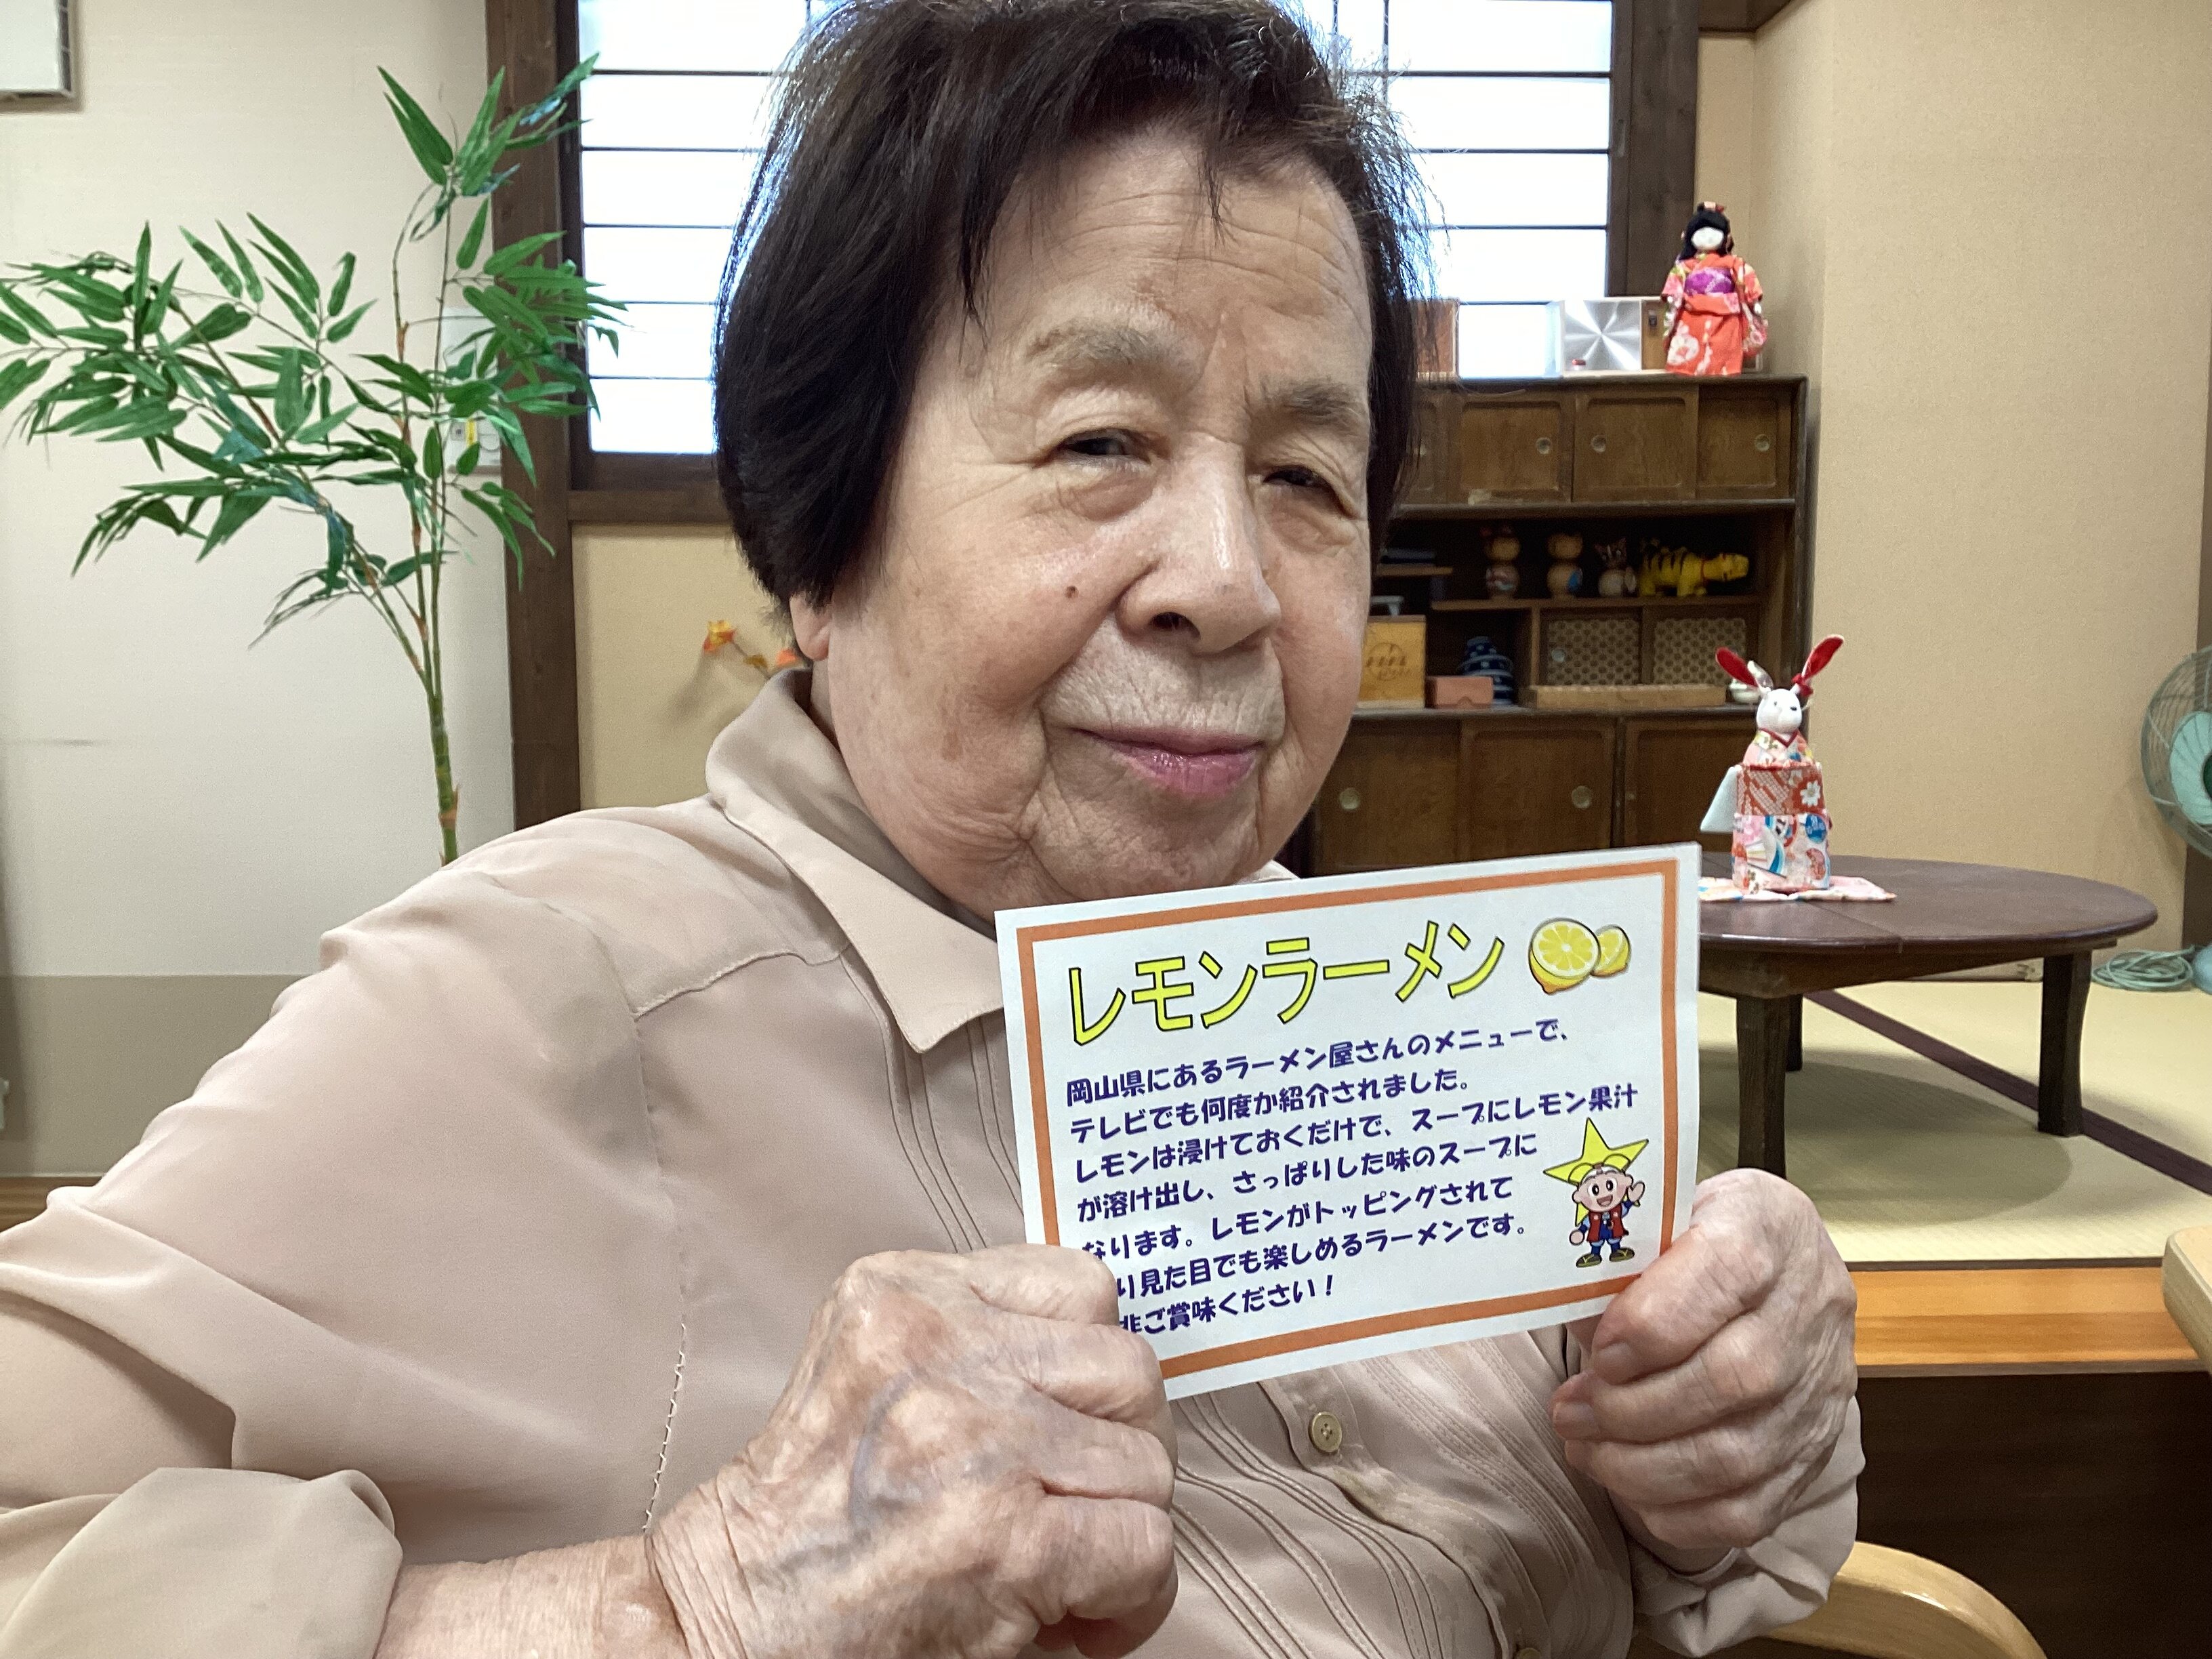 レモンラーメン
岡山県にあるラーメン屋さんのメニューで、
テレビでも何度か紹介されました。
レモンは浸けておくだけで、スープにレモン果汁
が溶け出し、さっぱりした味のスープに
なります。レモンがトッピングされて
り見た目でも楽しめるラーメンです。
非ご賞味ください！